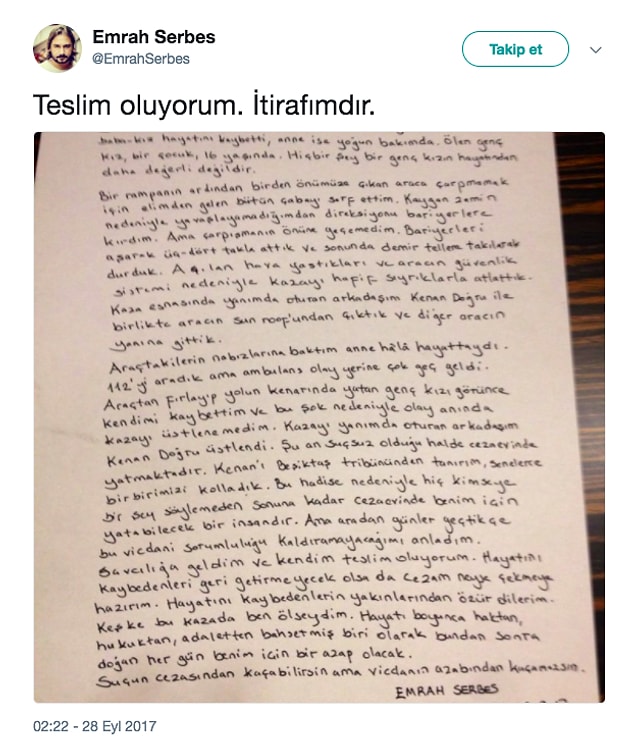 Emrah Serbes
@EmrahSerbes
Takip et
Teslim oluyorum. İtirafımdır.
baba-kız hayatını kaybetti, anne ise yoğun bakımda. Ölen genç
kız, bir çocuk, 16 yaşında. Hiçbir şey bir genç kızın hayatından
daha değerli değildir.
Bir rampanın ardından birden önümüze çıkan araca çarpmamak
için elimden gelen bütün çabayı sarf ettim. Kaygan zemin
nedeniyle yavaşlayamadığımdan direksiyonu bariyerlere
kırdım. Ama çarpışmanın önüne geçemedim. Bariyerleri
aşarak üç-dört takla attık ve sonunda demir tellere takılarak
durduk. Açılan hava yastıkları ve aracın güvenlik
sistemi nedeniyle kazayı hafif sıyrıklarla atlattık.
Kaza esnasında yanımda oturan arkadaşım Kenan Doğru ile
birlikte aracın sun roof'undan çıktık ve diğer aracın
yanına gittik.
Araçtakilerin nabızlarına baktım anne hâlâ hayattaydı.
112'yi aradık ama ambulans olay yerine çok geç geldi.
Araçtan fırlayıp yolun kenarında yatan genç kızı görünce
kendimi kaybettim ve bu şok nedeniyle olay anında
kazayı üstlenemedim. Kazayı yanımda oturan arkadaşım
Kenan Doğru üstlendi. Şu an suçsuz olduğu halde cezaevinde
yatmaktadır. Kenan'ı Beşiktaş tribününden tanırım, senelerce
birbirimizi kolladık. Bu hadise nedeniyle hiç kimseye
bir şey söylemeden sonuna kadar cezaevinde benim için
yatabilecek bir insandır. Ama aradan günler geçtikçe
bu vicdani sorumluluğu kaldıramayacağımı anladım.
Savcılığa geldim ve kendim teslim oluyorum. Hayatını
kaybedenleri geri getirmeyecek olsa da cezam neyse çekmeye
hazırım. Hayatını kaybedenlerin yakınlarından özür dilerim.
Keşke bu kazada ben ölseydim. Hayatı boyunca haktan,
hukuktan, adaletten bahsetmiş biri olarak bundan sonra
doğan her gün benim için bir azap olacak.
Suçun cezasından kaçabilirsin ama vicdanın azabından kaçamazsın.
EMRAH SERBES
02:22 - 28 Eyl 2017